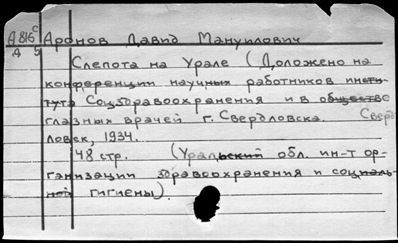 А 816 с Аронов Давид Мануилович
А 5
Слепота на Урале (Доложено на
конференции научных работников инсти-
тута Соцздравоохранения и в обществе
глазных врачей г. Свердловска. Сверд
ловск, 1934.
48 стр. (Уральский обл. ин-т ор-
ганизации здравоохранения и социаль-
ной гигиены).